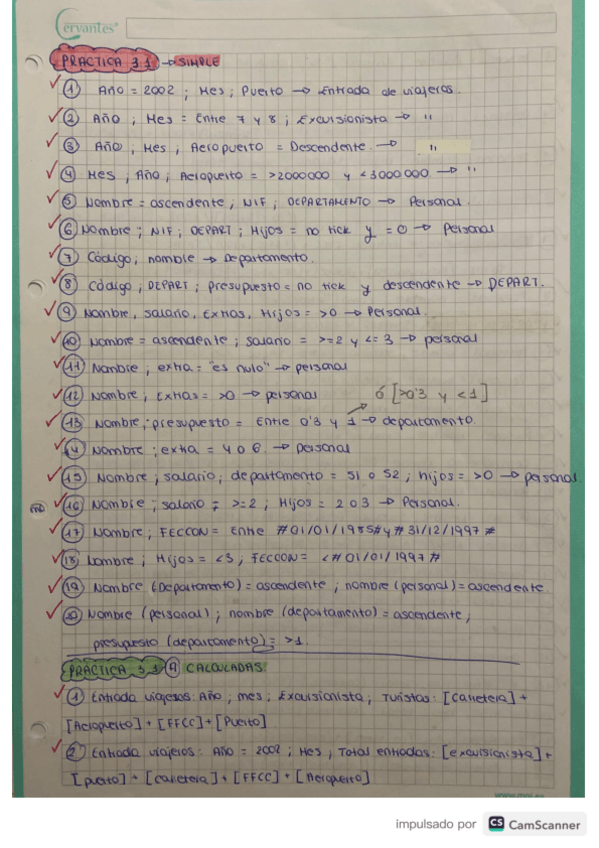 Cervantes
PRACTICA 3.1 → SIMPLE
① Año = 2002 ; Mes ; Puerto → Entrada de viajeros.
② Año ; Mes = Entre 7 y 8 ; Excursionista → "
③ Año ; Mes , Aeropuerto = Descendente. → "
④ Mes ; Año ; Aeropuerto = >2000000 y <3000000. → "
⑤ Nombre = ascendente ; NIF ; DEPARTAMENTO → Personal.
⑥ Nombre ; NIF ; DEPART ; Hijos = no tick y = 0 → Personal
⑦ Código ; nombre → Departamento.
⑧ Código ; DEPART ; presupuesto = no tick y descendente → DEPART.
⑨ Nombre, salario, Extras, Hijos = >0 → Personal.
⑩ Nombre = ascendente ; salario = >=2 y <= 3 → personal
⑪ Nombre ; extra = "es nulo" → personal
⑫ Nombre ; Extras = >0 → personal ó [>0'3 y <1]
⑬ Nombre ; presupuesto = Entre 0'3 y 1 → departamento.
⑭ Nombre ; extra = 4 o 6. → personal
⑮ Nombre ; salario ; departamento = 51 o 52 ; hijos = >0 → personal.
⑯ Nombre ; salario = >=2 ; Hijos = 2 o 3 → Personal.
⑰ Nombre ; FECCON = Entre #01/01/1985# y #31/12/1997#
⑱ Nombre ; Hijos = <3 ; FECCON = <#01/01/1997#
⑲ Nombre (Departamento) = ascendente ; nombre (personal) = ascendente.
⑳ Nombre (personal) ; nombre (departamento) = ascendente ;
presupuesto (departamento) = >1.
PRÁCTICA 3.1 A CALCULADAS:
① Entrada viajeros: Año ; mes ; Excursionista ; Turistas: [Carretera] +
[Aeropuerto] + [FFCC] + [Puerto]
② Entrada viajeros: Año = 2002 ; Mes ; Total entradas: [excursionista] +
[puerto] + [carretera] + [FFCC] + [Aeropuerto]
impulsado por CS CamScanner